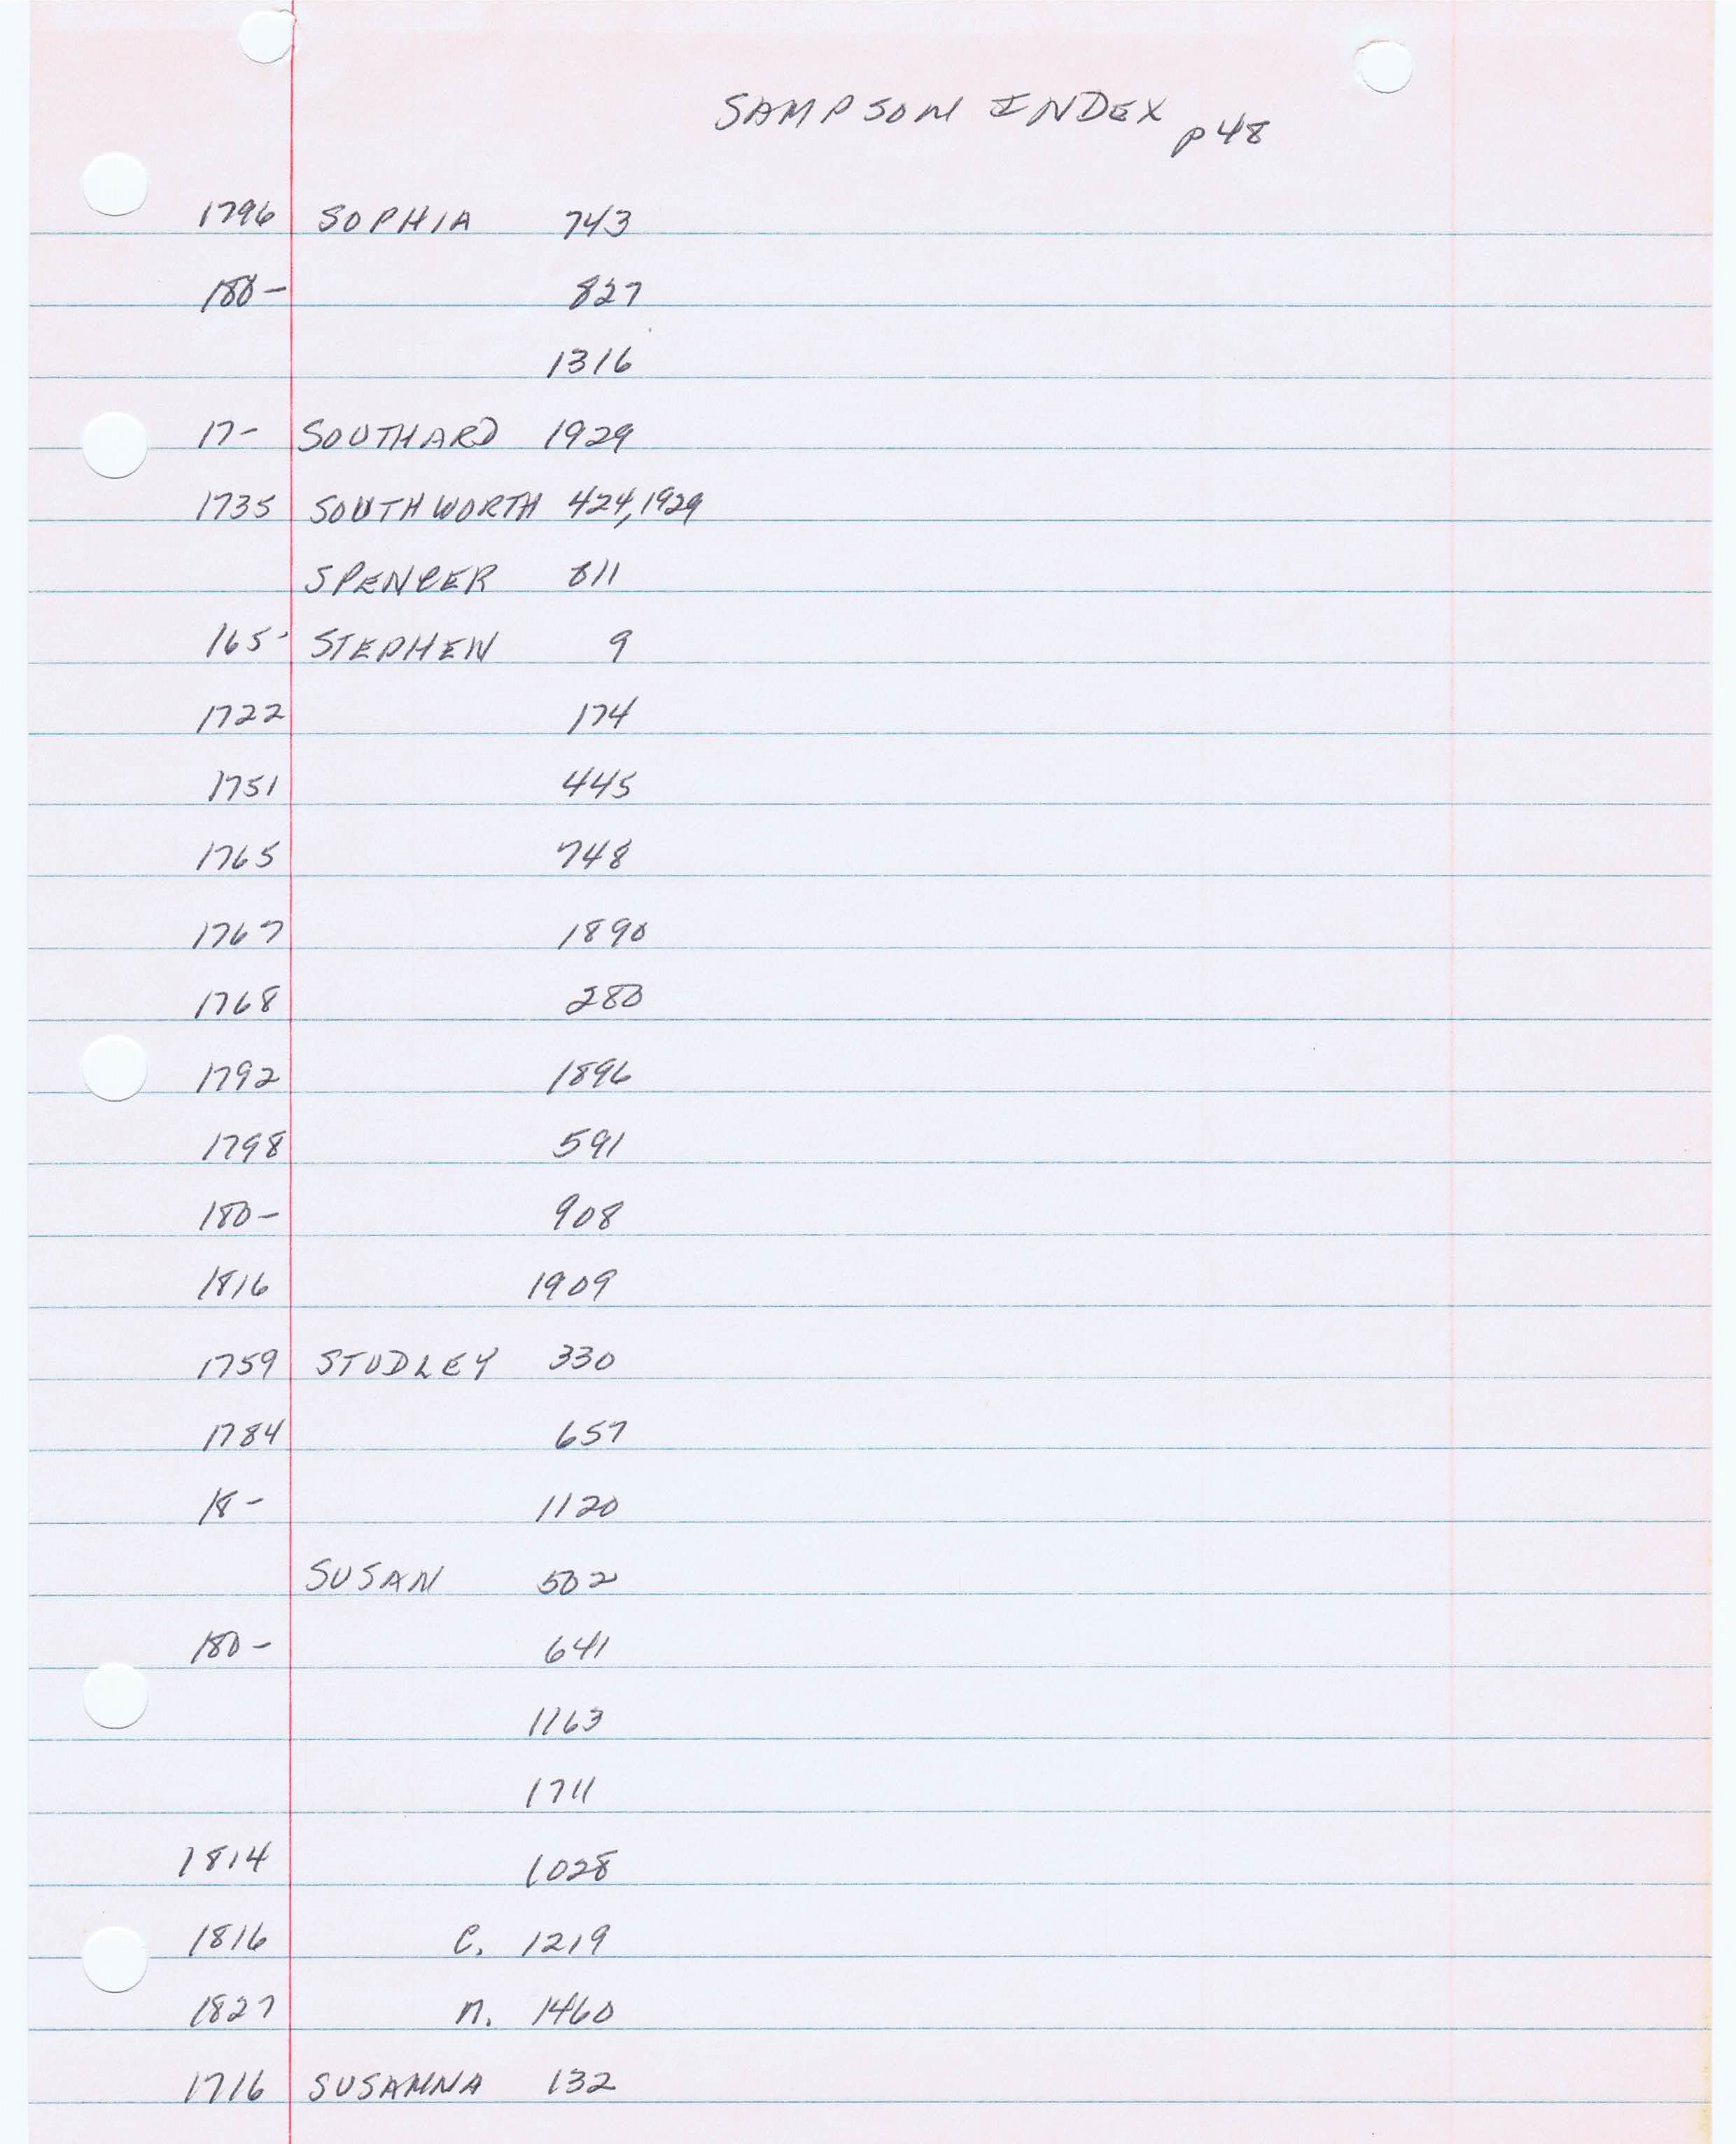 SAMPSON INDEX p48
1796 SOPHIA 743
180- 827
1316
17- SOUTHARD 1929
1735 SOUTHWORTH 424,1929
SPENCER 811
165- STEPHEN 9
1722 174
1751 445
1765 748
1767 1890
1768 280
1792 1896
1798 591
180- 908
1816 1909
1759 STUDLEY 330
1784 657
18- 1120
SUSAN 502
180- 641
1163
1711
1814 1028
1816 C. 1219
1827 N. 1460
1716 SUSANNA 132